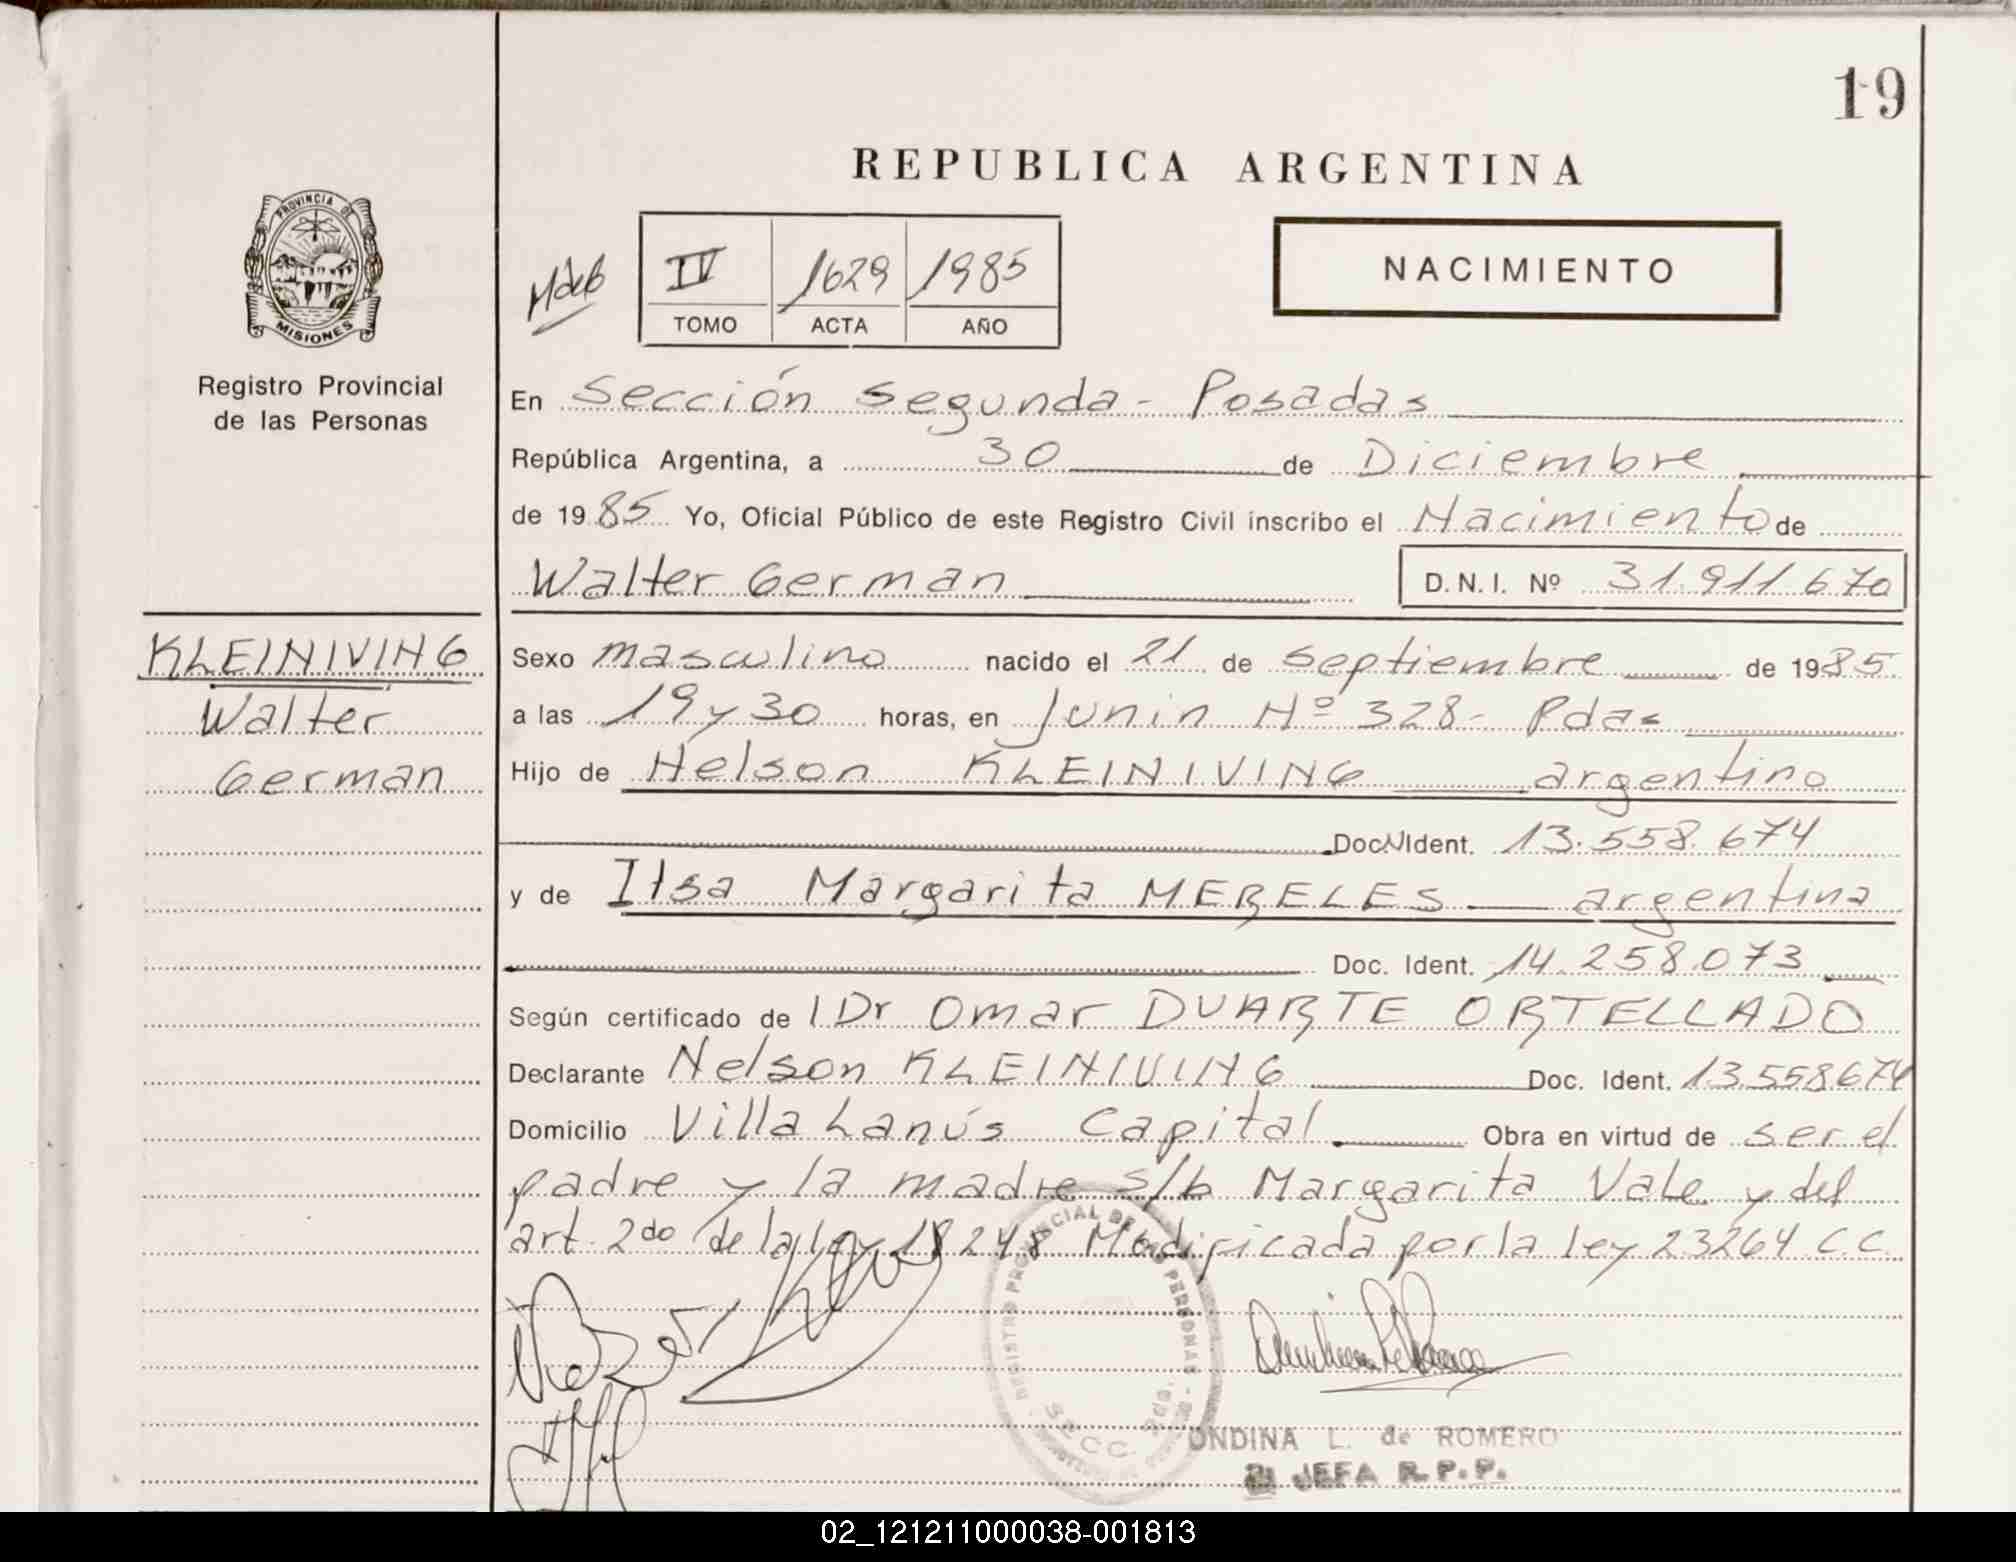 19
REPUBLICA ARGENTINA
PROVINCIA DE
MISIONES
Registro Provincial
de las Personas
IV 1629 1985
TOMO ACTA AÑO
NACIMIENTO
En Sección Segunda - Posadas
República Argentina, a 30 de Diciembre
de 1985 Yo, Oficial Público de este Registro Civil inscribo el Nacimiento de
Walter German D.N.I. Nº 31.911.670
KLEINIVING
Walter
German
Sexo masculino nacido el 21 de Septiembre de 1985
a las 19 y 30 horas, en Junin Nº 328 - Pdas
Hijo de Nelson KLEINIVING argentino
Doc. Ident. 13.558.674
y de Ilsa Margarita MERELES argentina
Doc. Ident. 14.258.073
Según certificado de Dr Omar DUARTE ORTELLADO
Declarante Nelson KLEINIVING Doc. Ident. 13.558674
Domicilio Villa Lanús Capital Obra en virtud de ser el
padre y la madre s/b Margarita Vale y del
art. 2do de la ley 18248 Modificada por la ley 23264 C.C.
REGISTRO PROVINCIAL DE LAS PERSONAS
SECC. 2da.
ONDINA L. de ROMERO
JEFA R.P.P.
02_121211000038-001813